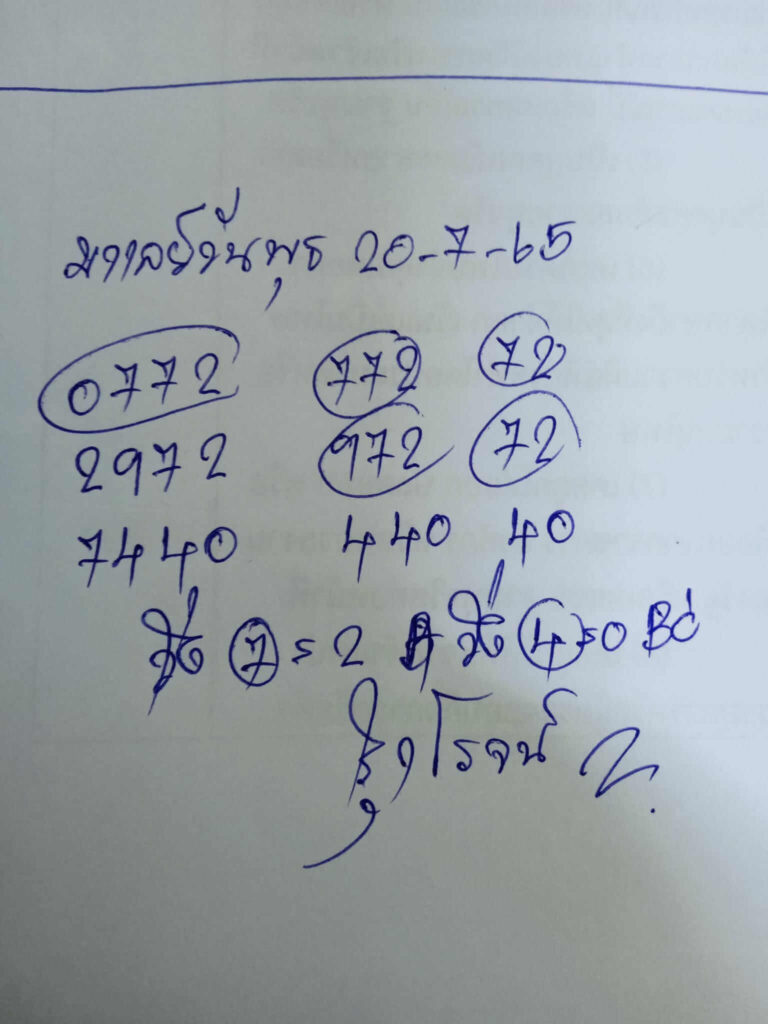 มาเลย์วันพุธ 20-7-65
0772 772 72
2972 972 72
7440 440 40
วิ่ง 7 = 2 วิ่ง 4 = 0
รุ่งโรจน์